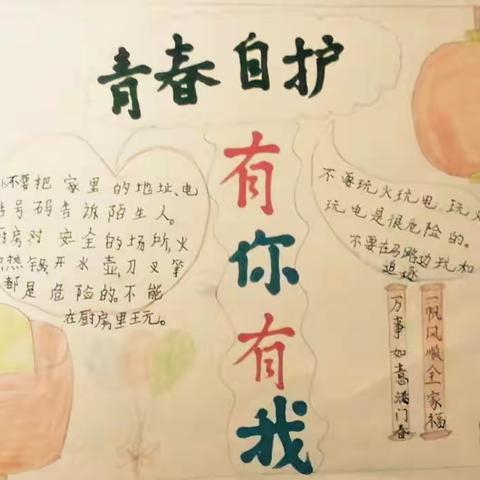 青春自护
有你有我
不要把家里的地址、电
话号码告诉陌生人。
厨房对安全的场所,火
热锅开水壶,刀叉等
都是危险的。不能
在厨房里玩。
不要玩火玩电、玩火
玩电是很危险的。
不要在马路边玩和
追逐
一帆风顺全家福
万事如意满门春